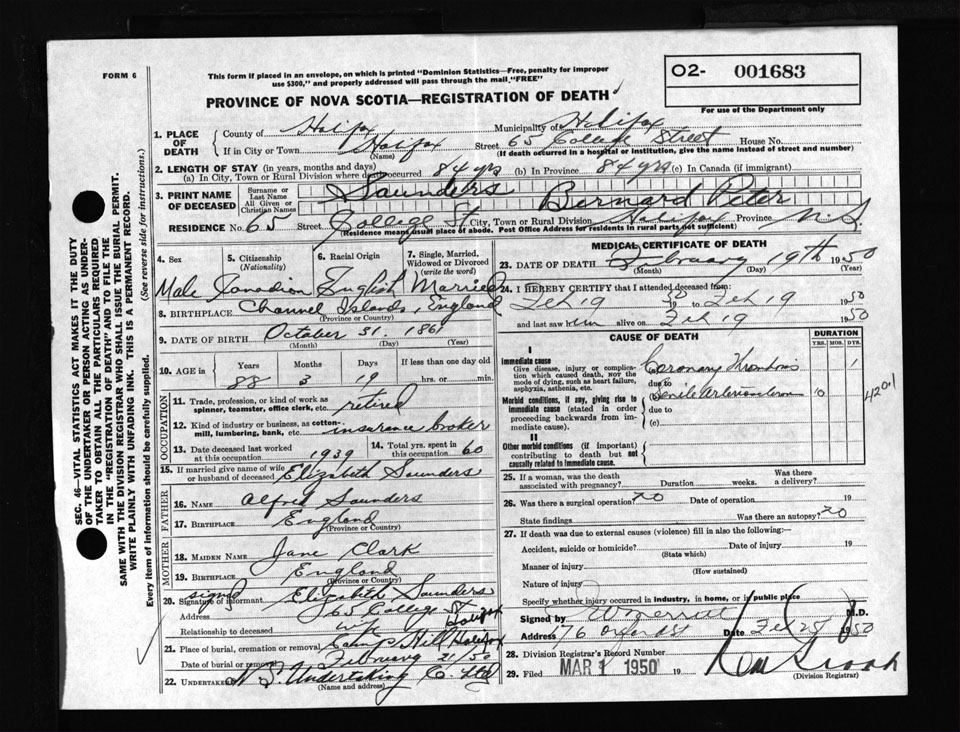 FORM 6
This form if placed in an envelope, on which is printed "Dominion Statistics—Free, penalty for improper
use $300," and properly addressed will pass through the mail "FREE"
PROVINCE OF NOVA SCOTIA—REGISTRATION OF DEATH
O2- 001683
For use of the Department only
1. PLACE OF DEATH
County of Halifax Municipality of Halifax
If in City or Town Halifax (Name) Street 65 College Street House No.
(If death occurred in a hospital or institution, give the name instead of street and number)
2. LENGTH OF STAY (in years, months and days)
(a) In City, Town or Rural Division where death occurred 84 yrs (b) In Province 84 yrs (c) In Canada (if immigrant)
3. PRINT NAME OF DECEASED
Surname or Last Name Saunders
All Given or Christian Names Bernard Peter
RESIDENCE No. 65 Street College St City, Town or Rural Division Halifax Province N.S.
(Residence means usual place of abode. Post Office Address for residents in rural parts not sufficient)
4. Sex Male
5. Citizenship (Nationality) Canadian
6. Racial Origin English
7. Single, Married, Widowed or Divorced (write the word) Married
8. BIRTHPLACE Channel Islands, England
(Province or Country)
9. DATE OF BIRTH October 31, 1861
(Month) (Day) (Year)
10. AGE in Years 88 Months 3 Days 19 If less than one day old hrs. or min.
OCCUPATION
11. Trade, profession, or kind of work as spinner, teamster, office clerk, etc. retired
12. Kind of industry or business, as cotton-mill, lumbering, bank, etc. insurance broker
13. Date deceased last worked at this occupation 1939
14. Total yrs. spent in this occupation 60
15. If married give name of wife or husband of deceased Elizabeth Saunders
FATHER
16. Name Alfred Saunders
17. Birthplace England
(Province or Country)
MOTHER
18. MAIDEN NAME Jane Clark
19. BIRTHPLACE England
(Province or Country)
signed
20. Signature of informant Elizabeth Saunders
Address 65 College St Halifax
Relationship to deceased wife
21. Place of burial, cremation or removal Camp Hill Halifax
Date of burial or removal February 21/50
22. UNDERTAKER N.S. Undertaking Co. Ltd
(Name and address)
MEDICAL CERTIFICATE OF DEATH
23. DATE OF DEATH February 19th 1950
(Month) (Day) (Year)
24. I HEREBY CERTIFY that I attended deceased from:
Feb 19 1950 to Feb 19 1950
and last saw him alive on Feb 19 1950
CAUSE OF DEATH
DURATION
YRS. MOS. DYS.
I
Immediate cause
Give disease, injury or complication which caused death, not the mode of dying, such as heart failure, asphyxia, asthenia, etc.
(a) Coronary Thrombosis 1
due to
Morbid conditions, if any, giving rise to immediate cause (stated in order proceeding backwards from immediate cause).
(b) Senile Arteriosclerosis 10
due to
(c)
4201
II
Other morbid conditions (if important) contributing to death but not causally related to immediate cause.
25. If a woman, was the death associated with pregnancy? Duration weeks. Was there a delivery?
26. Was there a surgical operation? no Date of operation 19
State findings Was there an autopsy? no
27. If death was due to external causes (violence) fill in also the following:—
Accident, suicide or homicide? Date of injury 19
(State which)
Manner of injury
(How sustained)
Nature of injury
Specify whether injury occurred in industry, in home, or in public place
Signed by Merritt M.D.
Address 76 Oxford St Date Feb 28 1950
28. Division Registrar's Record Number
29. Filed MAR 1 1950 19
(Division Registrar)
SEC. 46—VITAL STATISTICS ACT MAKES IT THE DUTY
OF THE UNDERTAKER OR PERSON ACTING AS UNDER-
TAKER TO OBTAIN ALL THE PARTICULARS REQUIRED
IN THE "REGISTRATION OF DEATH" AND TO FILE THE
SAME WITH THE DIVISION REGISTRAR WHO SHALL ISSUE THE BURIAL PERMIT.
WRITE PLAINLY WITH UNFADING INK. THIS IS A PERMANENT RECORD.
Every item of information should be carefully supplied. (See reverse side for instructions.)